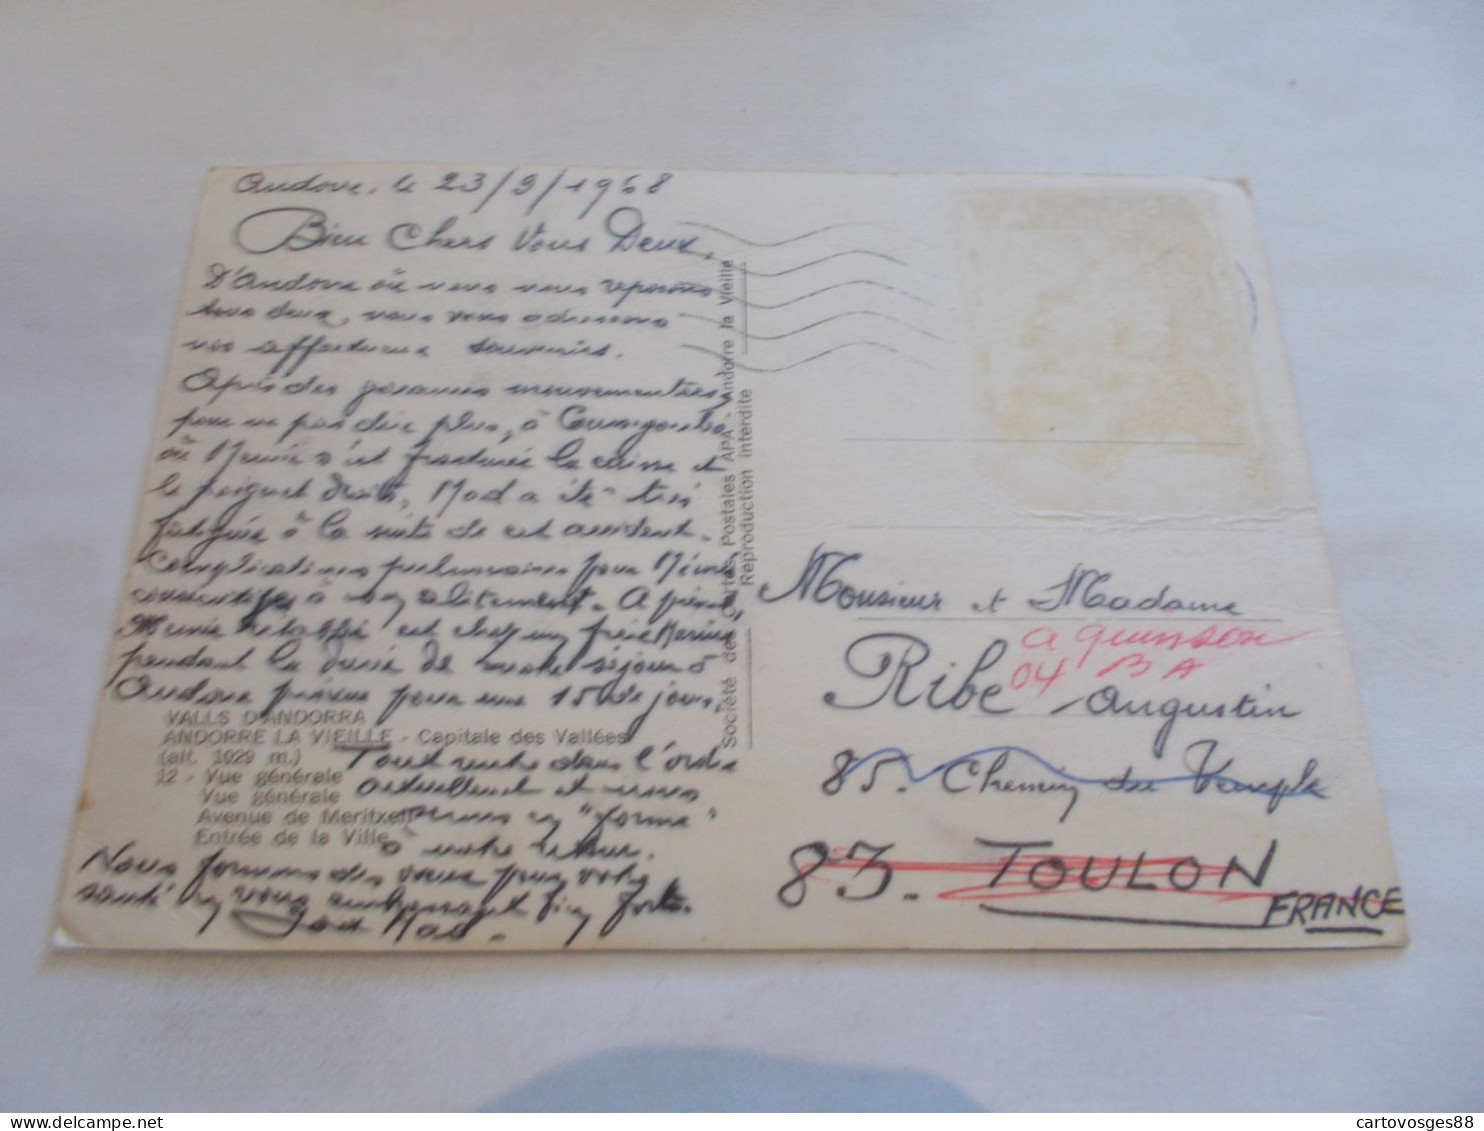 Andorre, le 23/9/1968
Bien Chers Vous Deux,
D'Andorre où nous nous reposons
tous deux, nous vous adressons
nos affectueux souvenirs.
Après des journées mouvementées,
pour ne pas dire plus, à
où Mémé s'est fracturée la cuisse et
le poignet droit, Mad a été très
fatiguée à la suite de cet accident.
Complications pulmonaires pour Mémé
consécutifs à son alitement. A présent,
Mémé rétablie est chez mon frère
pendant la durée de notre séjour à
Andorre prévue pour une 15ne de jours.
Tout rentre dans l'ordre
actuellement et nous
serons en "forme"
à notre retour.
Nous formons des vœux pour votre
santé en vous embrassant bien fort.
Mad.
VALLS D'ANDORRA
ANDORRE LA VIEILLE - Capitale des Vallées
(alt. 1029 m.)
12 - Vue générale
Vue générale
Avenue de Meritxell
Entrée de la Ville
Société des Cartes Postales APA - Andorre la Vieille
Reproduction interdite
Monsieur et Madame
a quinson
04 BA
Ribe Augustin
85. Chemin du Temple
83. TOULON
FRANCE
cartovosges88